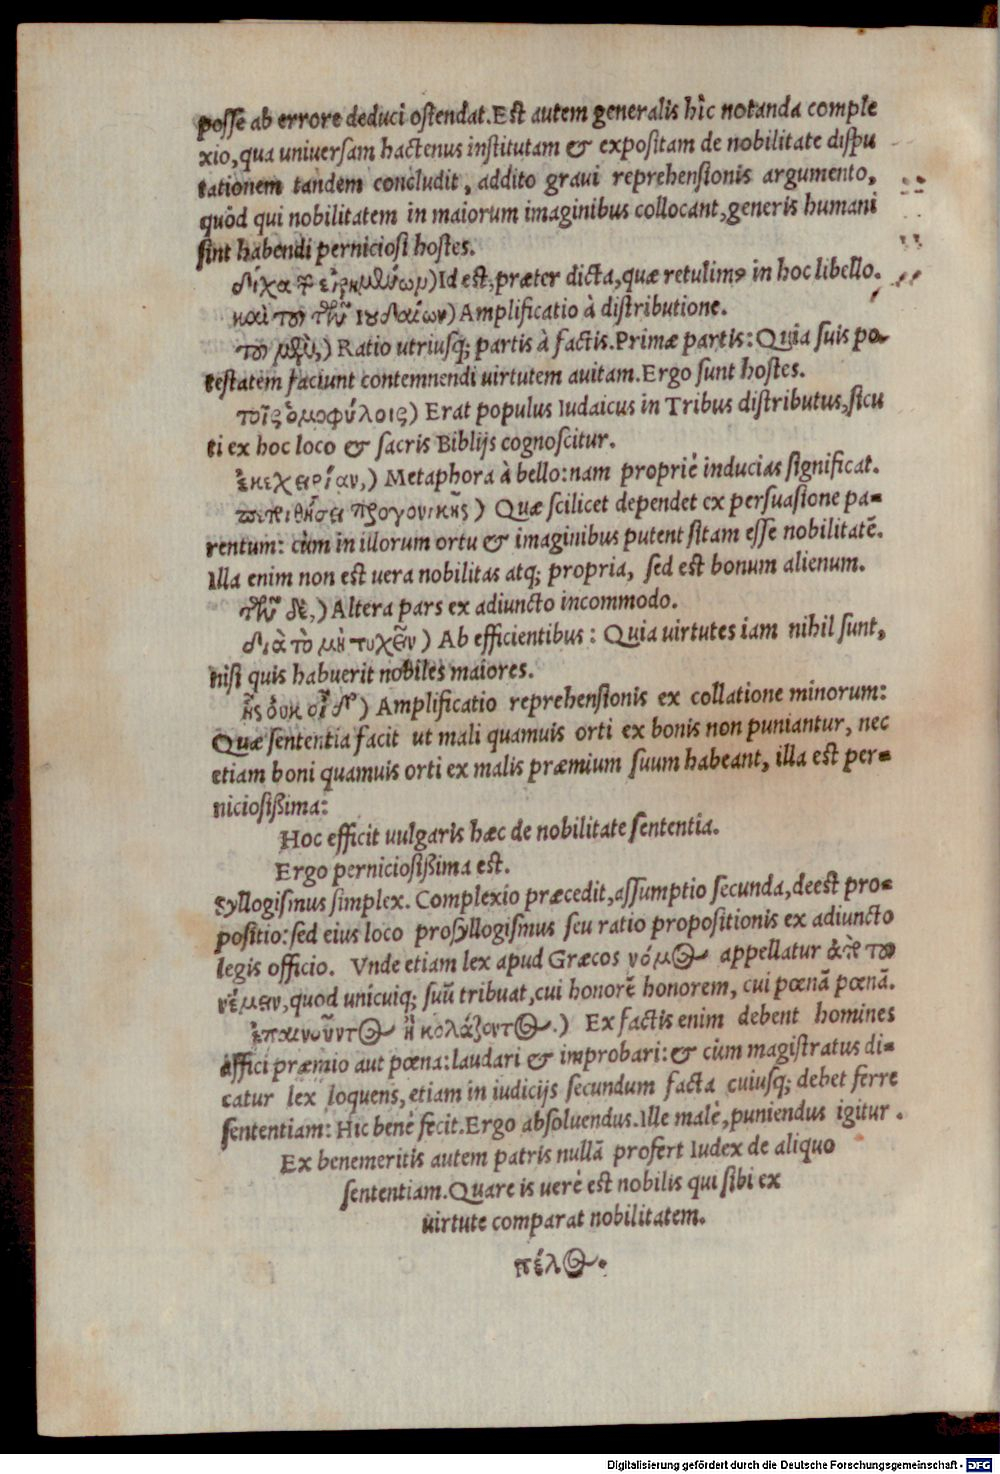 posse ab errore deduci ostendat. Est autem generalis hìc notanda comple
xio, qua universam hactenus institutam & expositam de nobilitate dispu
tationem tandem concludit, addito gravi reprehensionis argumento,
quòd qui nobilitatem in maiorum imaginibus collocant, generis humani
sint habendi perniciosi hostes.
δίχα τ εἰρημθύων) Id est, præter dicta, quæ retulimꝰ in hoc libello.
καὶ του τῶν ἰουδαίων) Amplificatio à distributione.
του μθὺ,) Ratio utriusq; partis à factis. Primæ partis: Quia suis po-
testatem faciunt contemnendi uirtutem auitam. Ergo sunt hostes.
τοῖς ὁμοφύλοις) Erat populus Iudaicus in Tribus distributus, sicu
ti ex hoc loco & sacris Biblijs cognoscitur.
ἐκεχειρίαν,) Metaphora à bello: nam propriè inducias significat.
πεπιθήσει προγονικῆς) Quæ scilicet dependet ex persuasione pa=
rentum: cùm in illorum ortu & imaginibus putent sitam esse nobilitatē.
Illa enim non est uera nobilitas atq; propria, sed est bonum alienum.
τῶν δὲ,) Altera pars ex adiuncto incommodo.
διὰ τὸ μὴ τυχεῖν) Ab efficientibus: Quia uirtutes iam nihil sunt,
nisi quis habuerit nobiles maiores.
ἧς οὐκ οἶδ) Amplificatio reprehensionis ex collatione minorum:
Quæ sententia facit ut mali quamuis orti ex bonis non puniantur, nec
etiam boni quamuis orti ex malis præmium suum habeant, illa est per=
niciosißima:
Hoc efficit uulgaris hæc de nobilitate sententia.
Ergo perniciosißima est.
Syllogismus simplex. Complexio præcedit, assumptio secunda, deest pro=
positio: sed eius loco prosyllogismus seu ratio propositionis ex adiuncto
legis officio. Vnde etiam lex apud Græcos νόμος appellatur ἀπὸ του
νέμειν, quod unicuiq; suū tribuat, cui honorē honorem, cui pœnā pœnā.
ἐπαινοῦντος ἢ κολάζοντος.) Ex factis enim debent homines
affici præmio aut pœna: laudari & improbari: & cùm magistratus di=
catur lex loquens, etiam in iudicijs secundum facta cuiusq; debet ferre
sententiam: Hic benè fecit. Ergo absoluendus. Ille malè, puniendus igitur.
Ex benemeritis autem patris nullā profert Iudex de aliquo
sententiam. Quare is uerè est nobilis qui sibi ex
uirtute comparat nobilitatem.
τέλος.
Digitalisierung gefördert durch die Deutsche Forschungsgemeinschaft - DFG